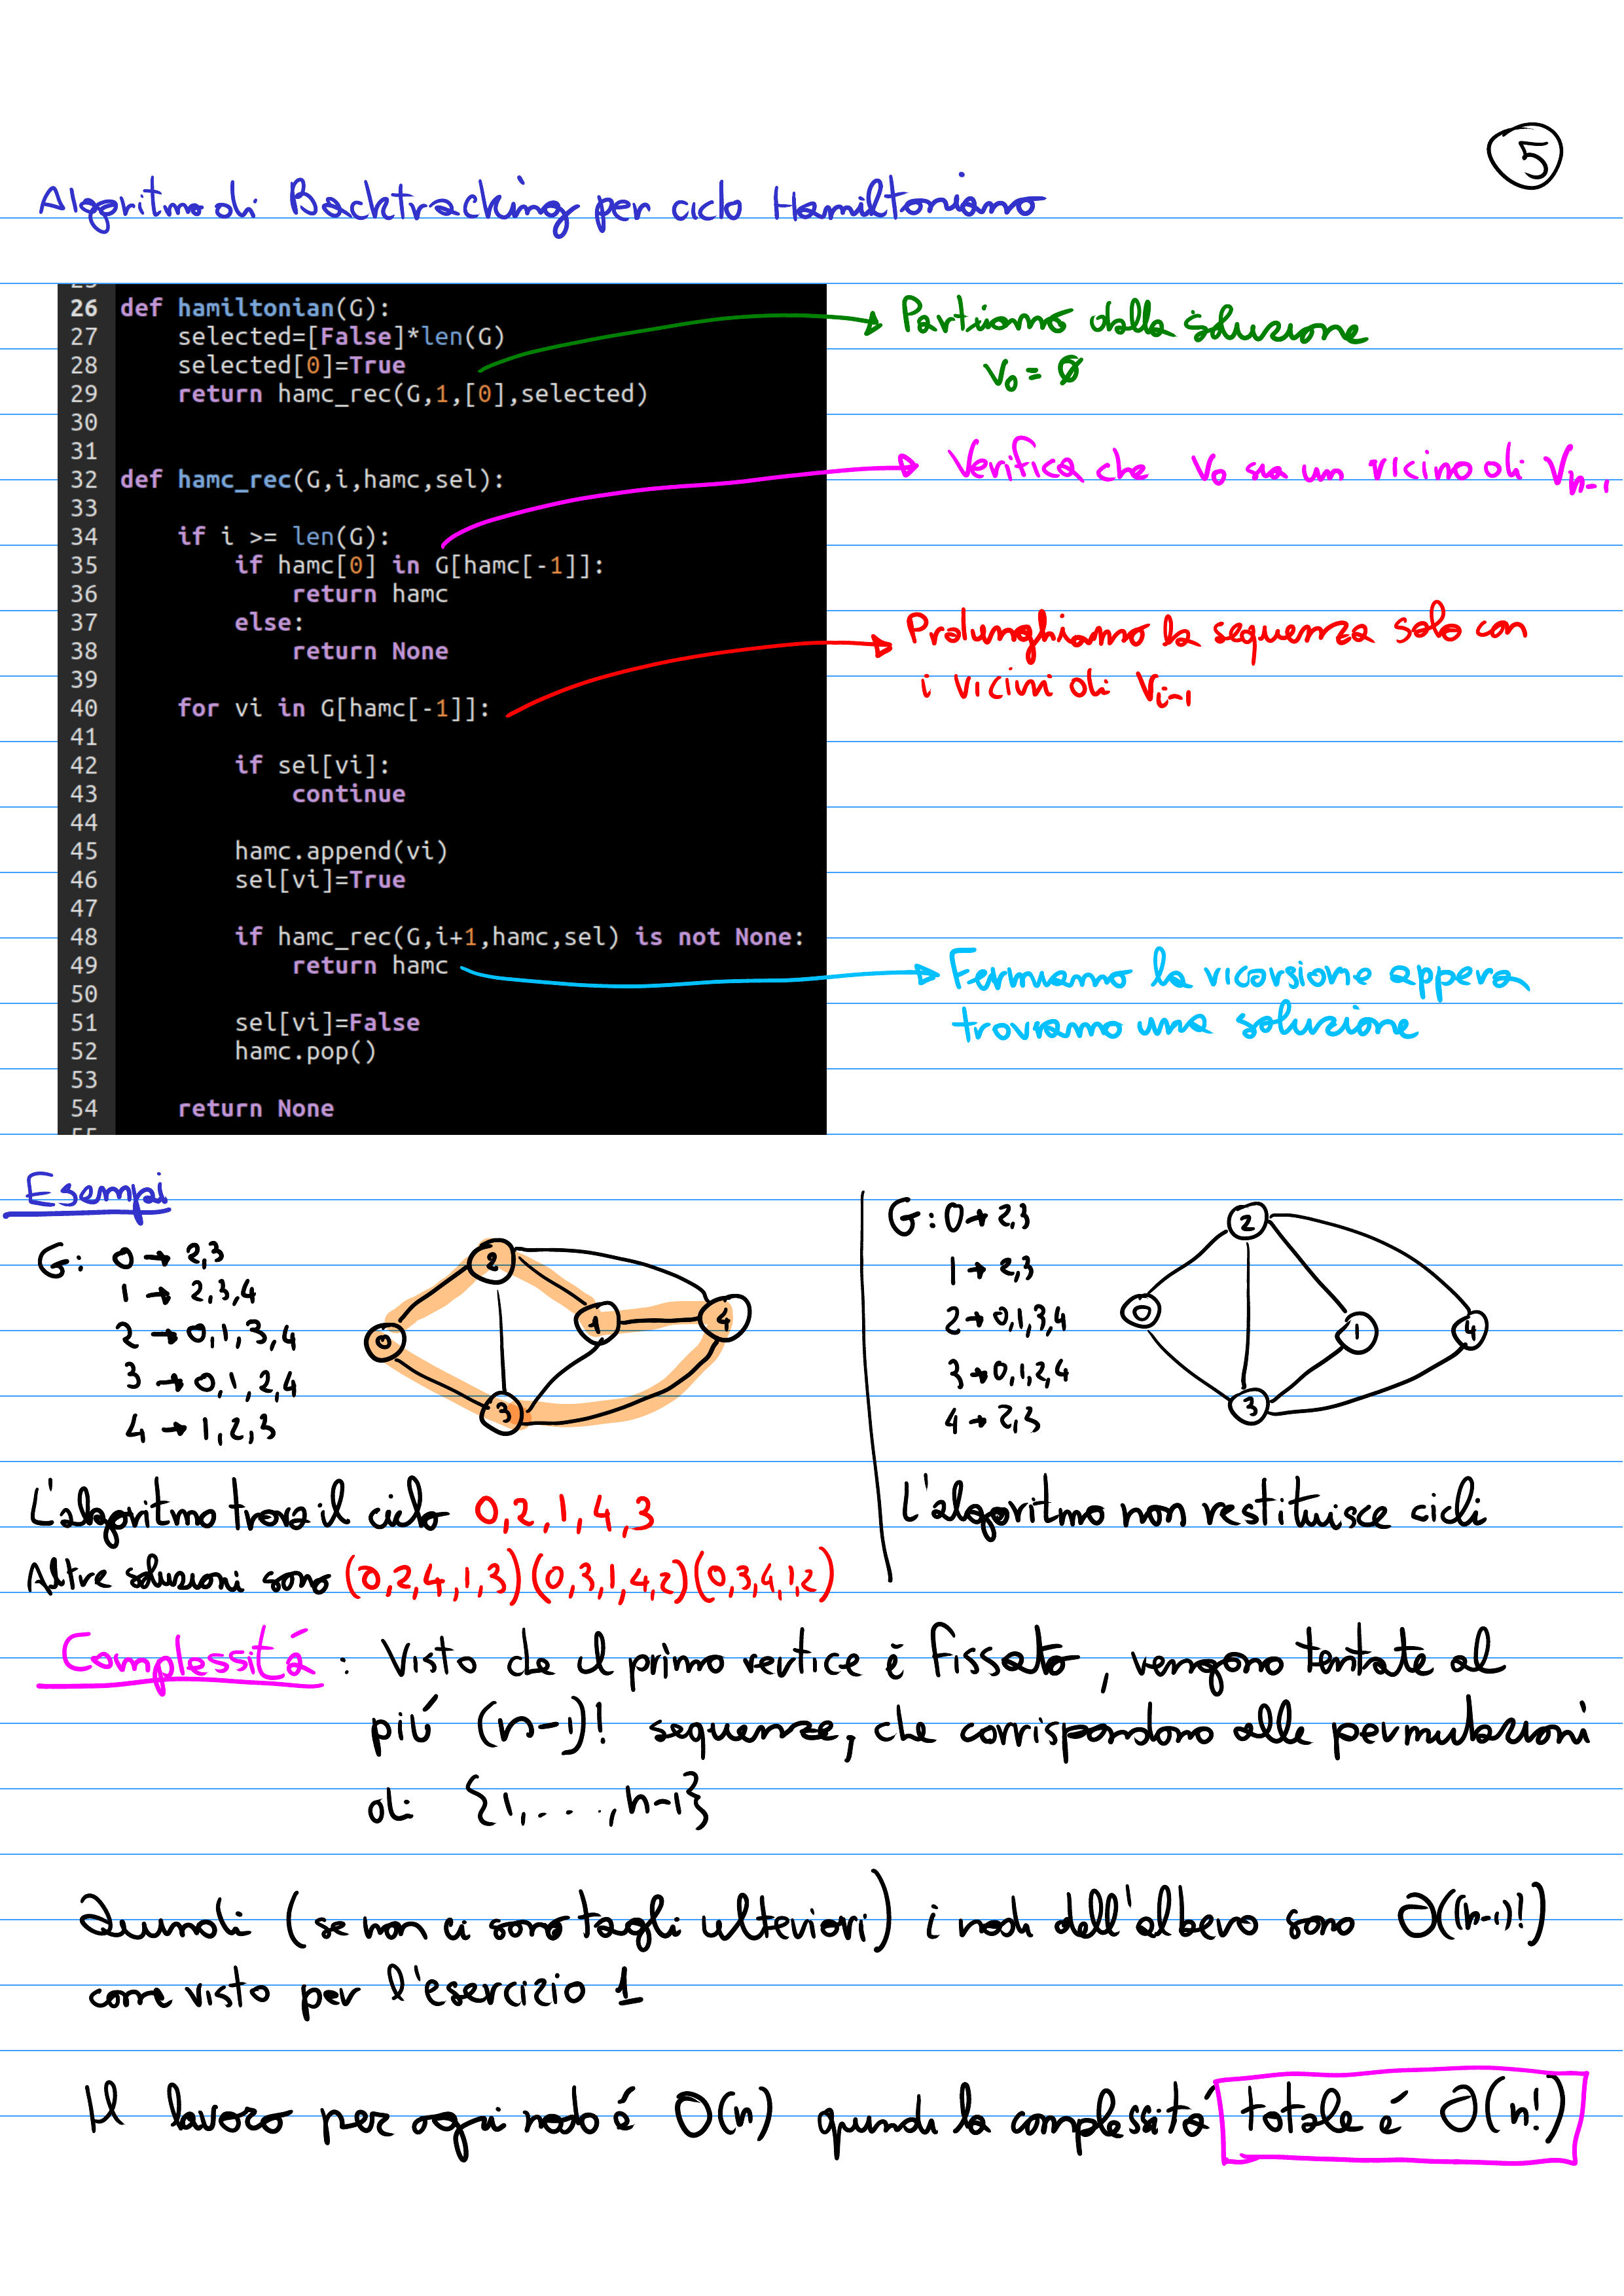 5
Algoritmo di Backtracking per ciclo Hamiltoniano
26 def hamiltonian(G):
27     selected=[False]*len(G)
28     selected[0]=True
29     return hamc_rec(G,1,[0],selected)
30
31
32 def hamc_rec(G,i,hamc,sel):
33
34     if i >= len(G):
35         if hamc[0] in G[hamc[-1]]:
36             return hamc
37         else:
38             return None
39
40     for vi in G[hamc[-1]]:
41
42         if sel[vi]:
43             continue
44
45         hamc.append(vi)
46         sel[vi]=True
47
48         if hamc_rec(G,i+1,hamc,sel) is not None:
49             return hamc
50
51         sel[vi]=False
52         hamc.pop()
53
54     return None
Partiamo dalla soluzione
V0 = 0
Verifica che V0 sia un vicino di Vn-1
Prolunghiamo la sequenza solo con
i vicini di Vi-1
Fermiamo la ricorsione appena
troviamo una soluzione
Esempi
G: 0 → 2,3
1 → 2,3,4
2 → 0,1,3,4
3 → 0,1,2,4
4 → 1,2,3
2
0
1
4
3
L'algoritmo trova il ciclo 0,2,1,4,3
Altre soluzioni sono (0,2,4,1,3)(0,3,1,4,2)(0,3,4,1,2)
G: 0 → 2,3
1 → 2,3
2 → 0,1,3,4
3 → 0,1,2,4
4 → 2,3
2
0
1
4
3
L'algoritmo non restituisce cicli
Complessitá : Visto che il primo vertice è fissato, vengono tentate al
piú (n-1)! sequenze, che corrispondono alle permutazioni
di {1,...,n-1}
Quindi (se non ci sono tagli ulteriori) i nodi dell'albero sono O((n-1)!)
come visto per l'esercizio 1
Il lavoro per ogni nodo é O(n) quindi la complessitá totale é O(n!)